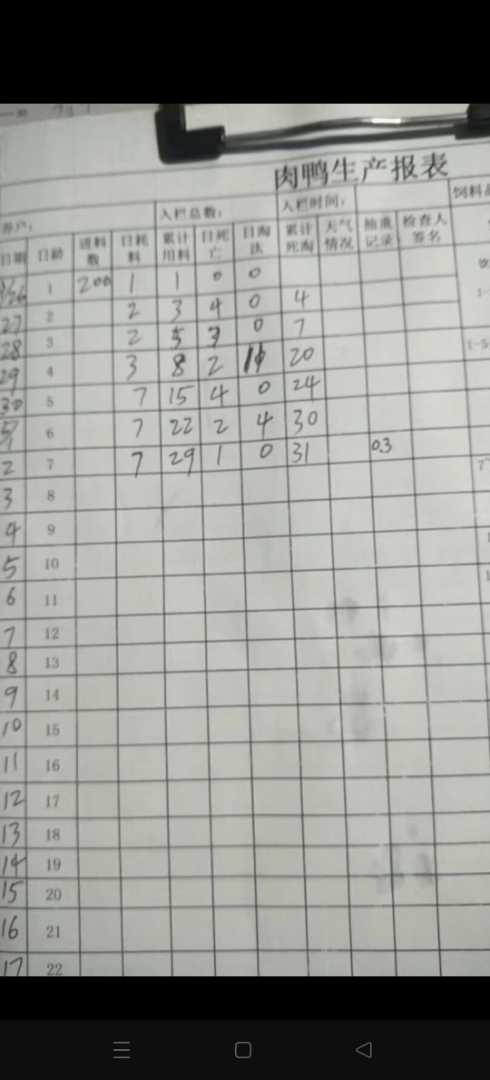 肉鸭生产报表
养户： 入栏总数： 入栏时间： 饲料
日期 日龄 进料数 日耗料 累计用料 日死亡 日淘汰 累计死淘 天气情况 抽重记录 检查人签名
26 1 200 1 1 0 0
27 2 2 3 4 0 4
28 3 2 5 3 0 7
29 4 3 8 2 11 20
30 5 7 15 4 0 24
5/1 6 7 22 2 4 30
2 7 7 29 1 0 31 0.3
3 8
4 9
5 10
6 11
7 12
8 13
9 14
10 15
11 16
12 17
13 18
14 19
15 20
16 21
17 22